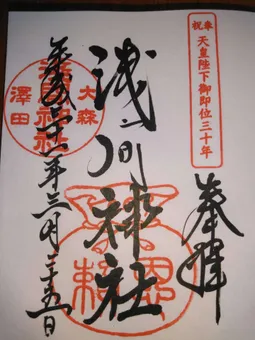 奉祝
天皇陛下御即位三十年
奉拝
大森
澤田
浅间神社
平成三十一年三月二十五日